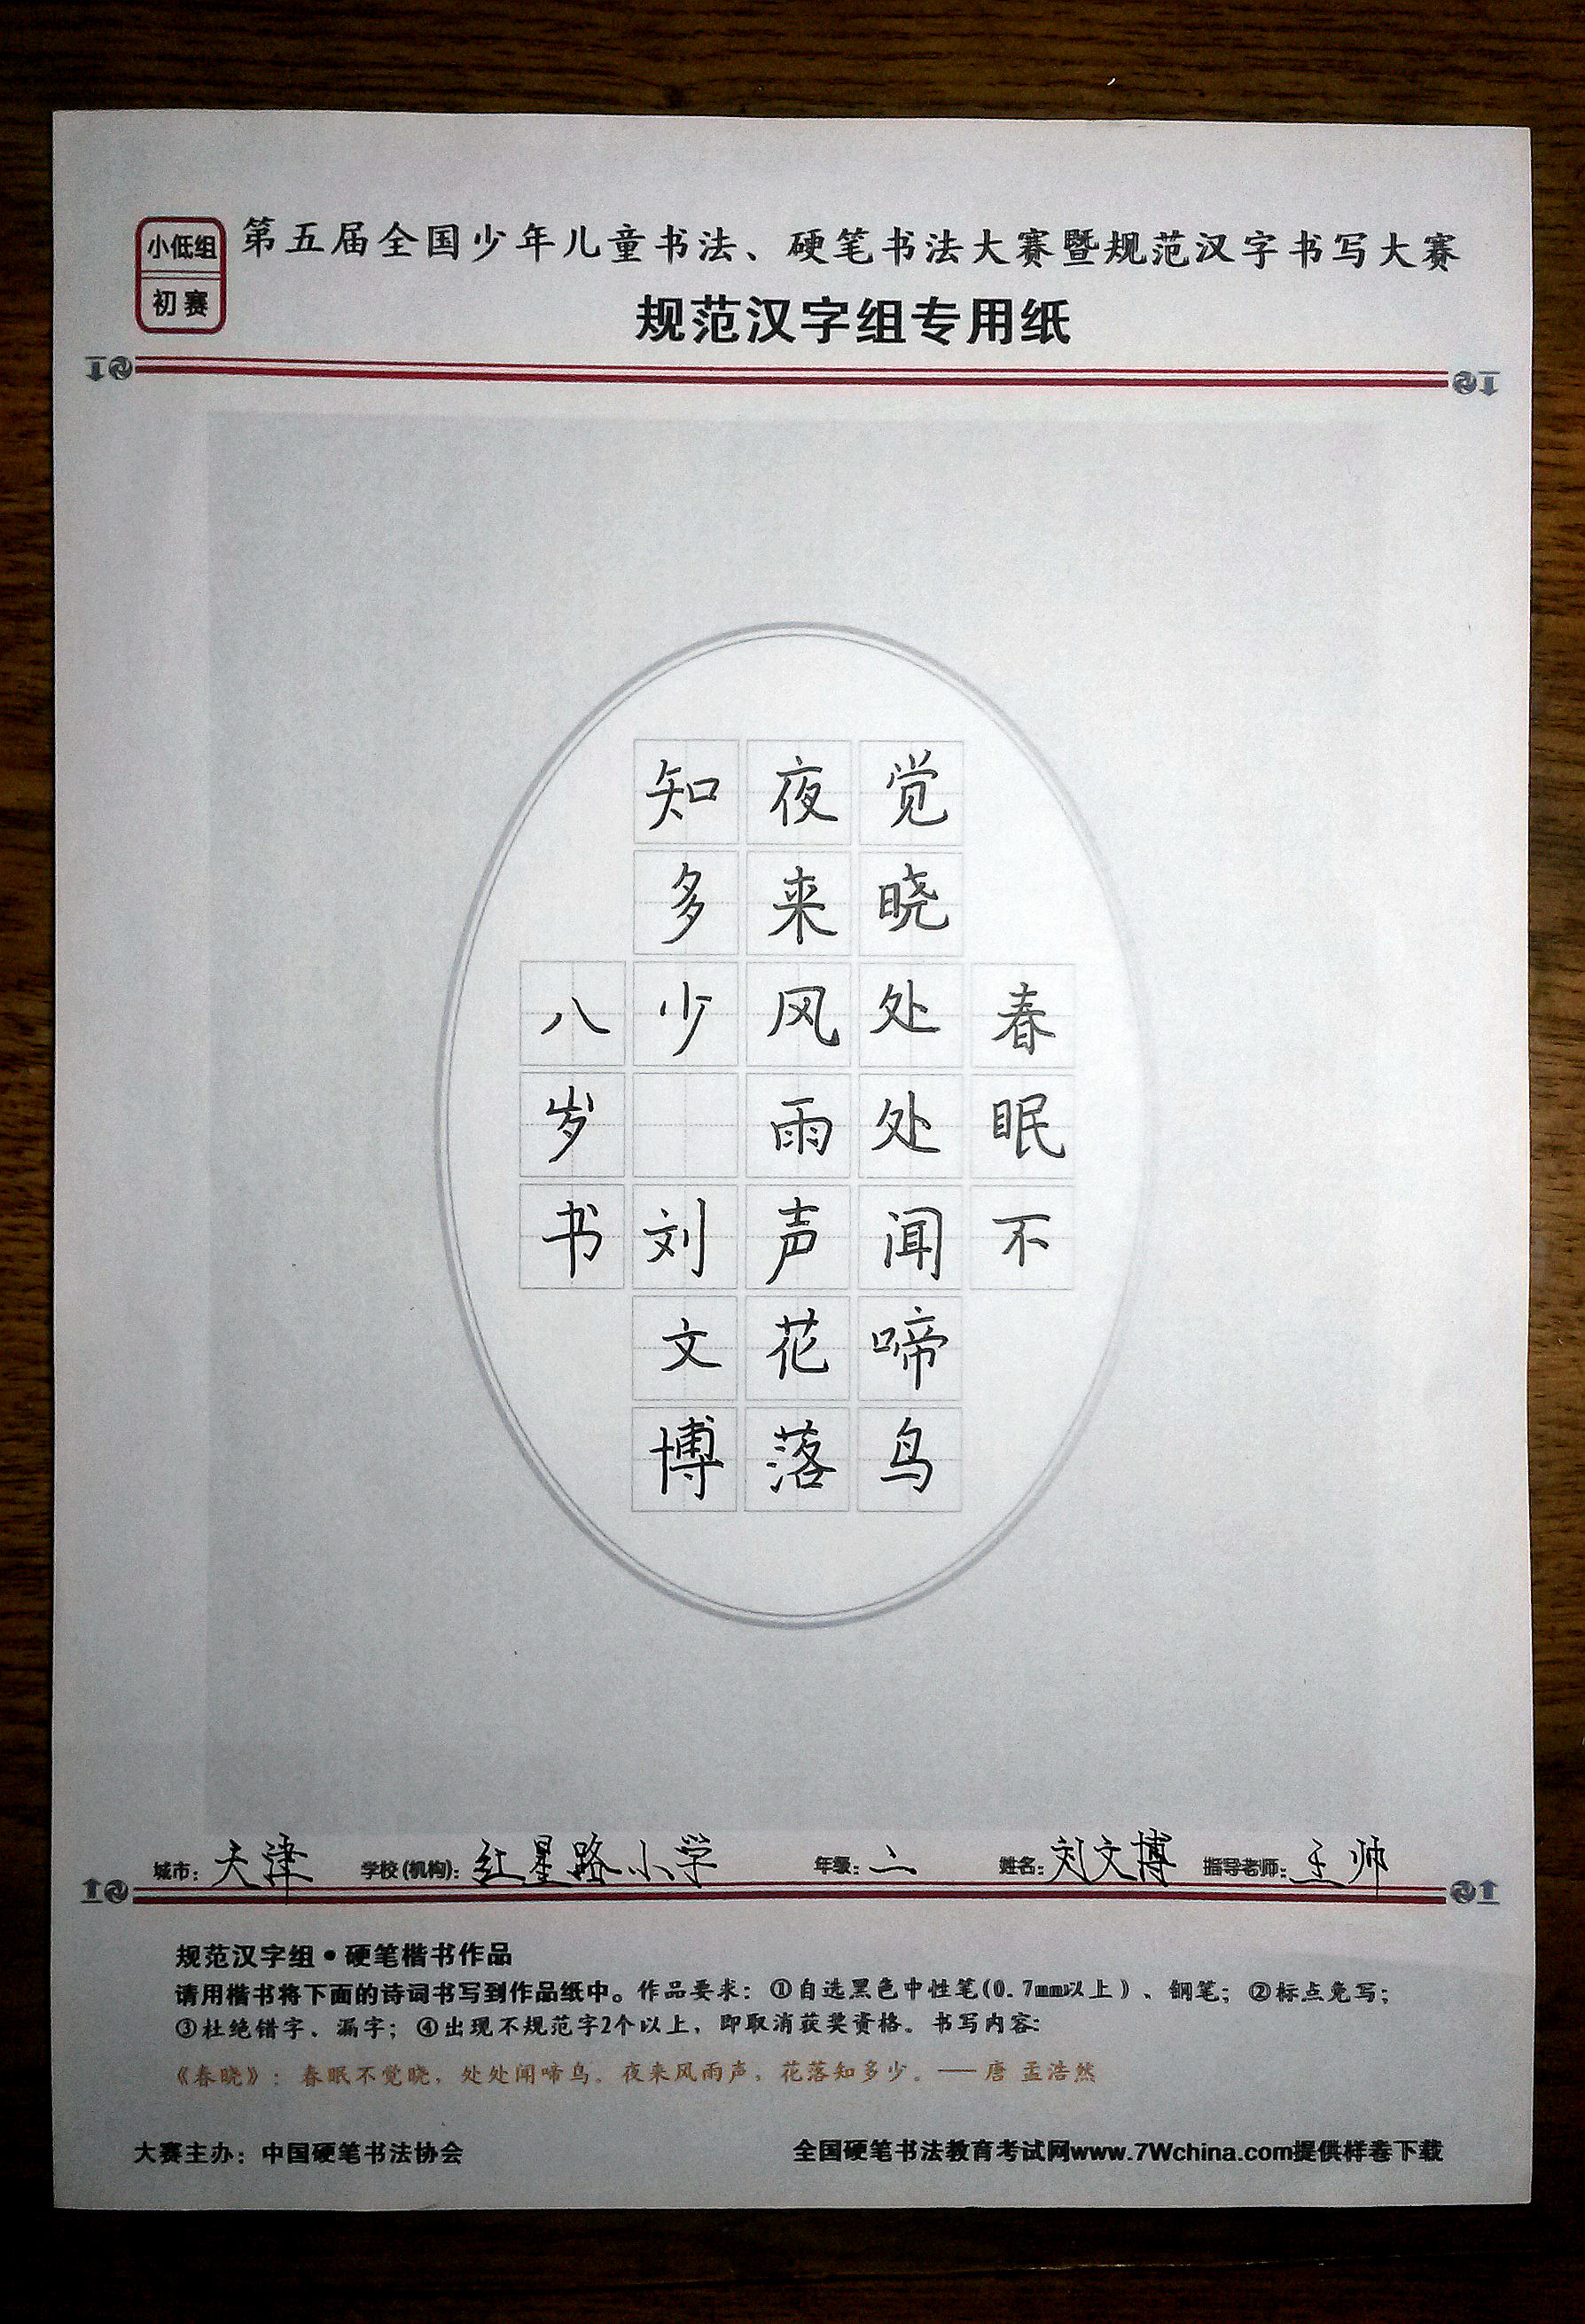 小低组
初赛
第五届全国少年儿童书法、硬笔书法大赛暨规范汉字书写大赛
规范汉字组专用纸
春眠不
觉晓处处闻啼鸟
夜来风雨声花落
知多少 刘文博
八岁书
城市：天津 学校(机构)：红星路小学 年级：二 姓名：刘文博 指导老师：王帅
规范汉字组•硬笔楷书作品
请用楷书将下面的诗词书写到作品纸中。作品要求：①自选黑色中性笔(0.7mm以上）、钢笔；②标点免写；
③杜绝错字、漏字；④出现不规范字2个以上，即取消获奖资格。书写内容：
《春晓》：春眠不觉晓，处处闻啼鸟。夜来风雨声，花落知多少。——唐 孟浩然
大赛主办：中国硬笔书法协会
全国硬笔书法教育考试网www.7Wchina.com提供样卷下载